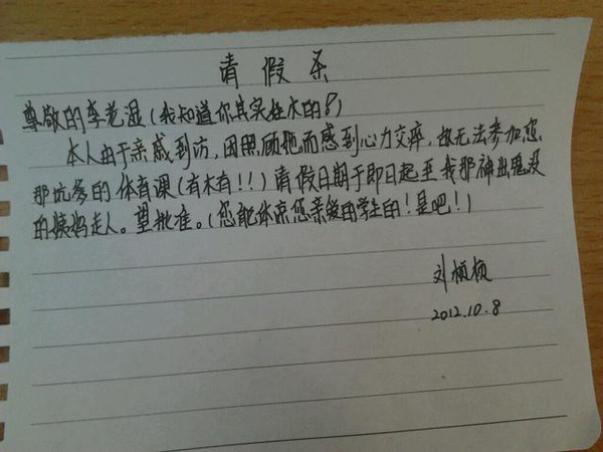 请假条
尊敬的李老湿(我知道你其实挺水的
本人由于亲戚到访,因照顾她而感到心力交瘁,故无法参加您
那坑爹的体育课(有木有!!)请假日期于即日起至我那神出鬼没
的姨妈走人。望批准。(您能体谅您亲爱的学生的!是吧!)
刘桢桢
2012.10.8